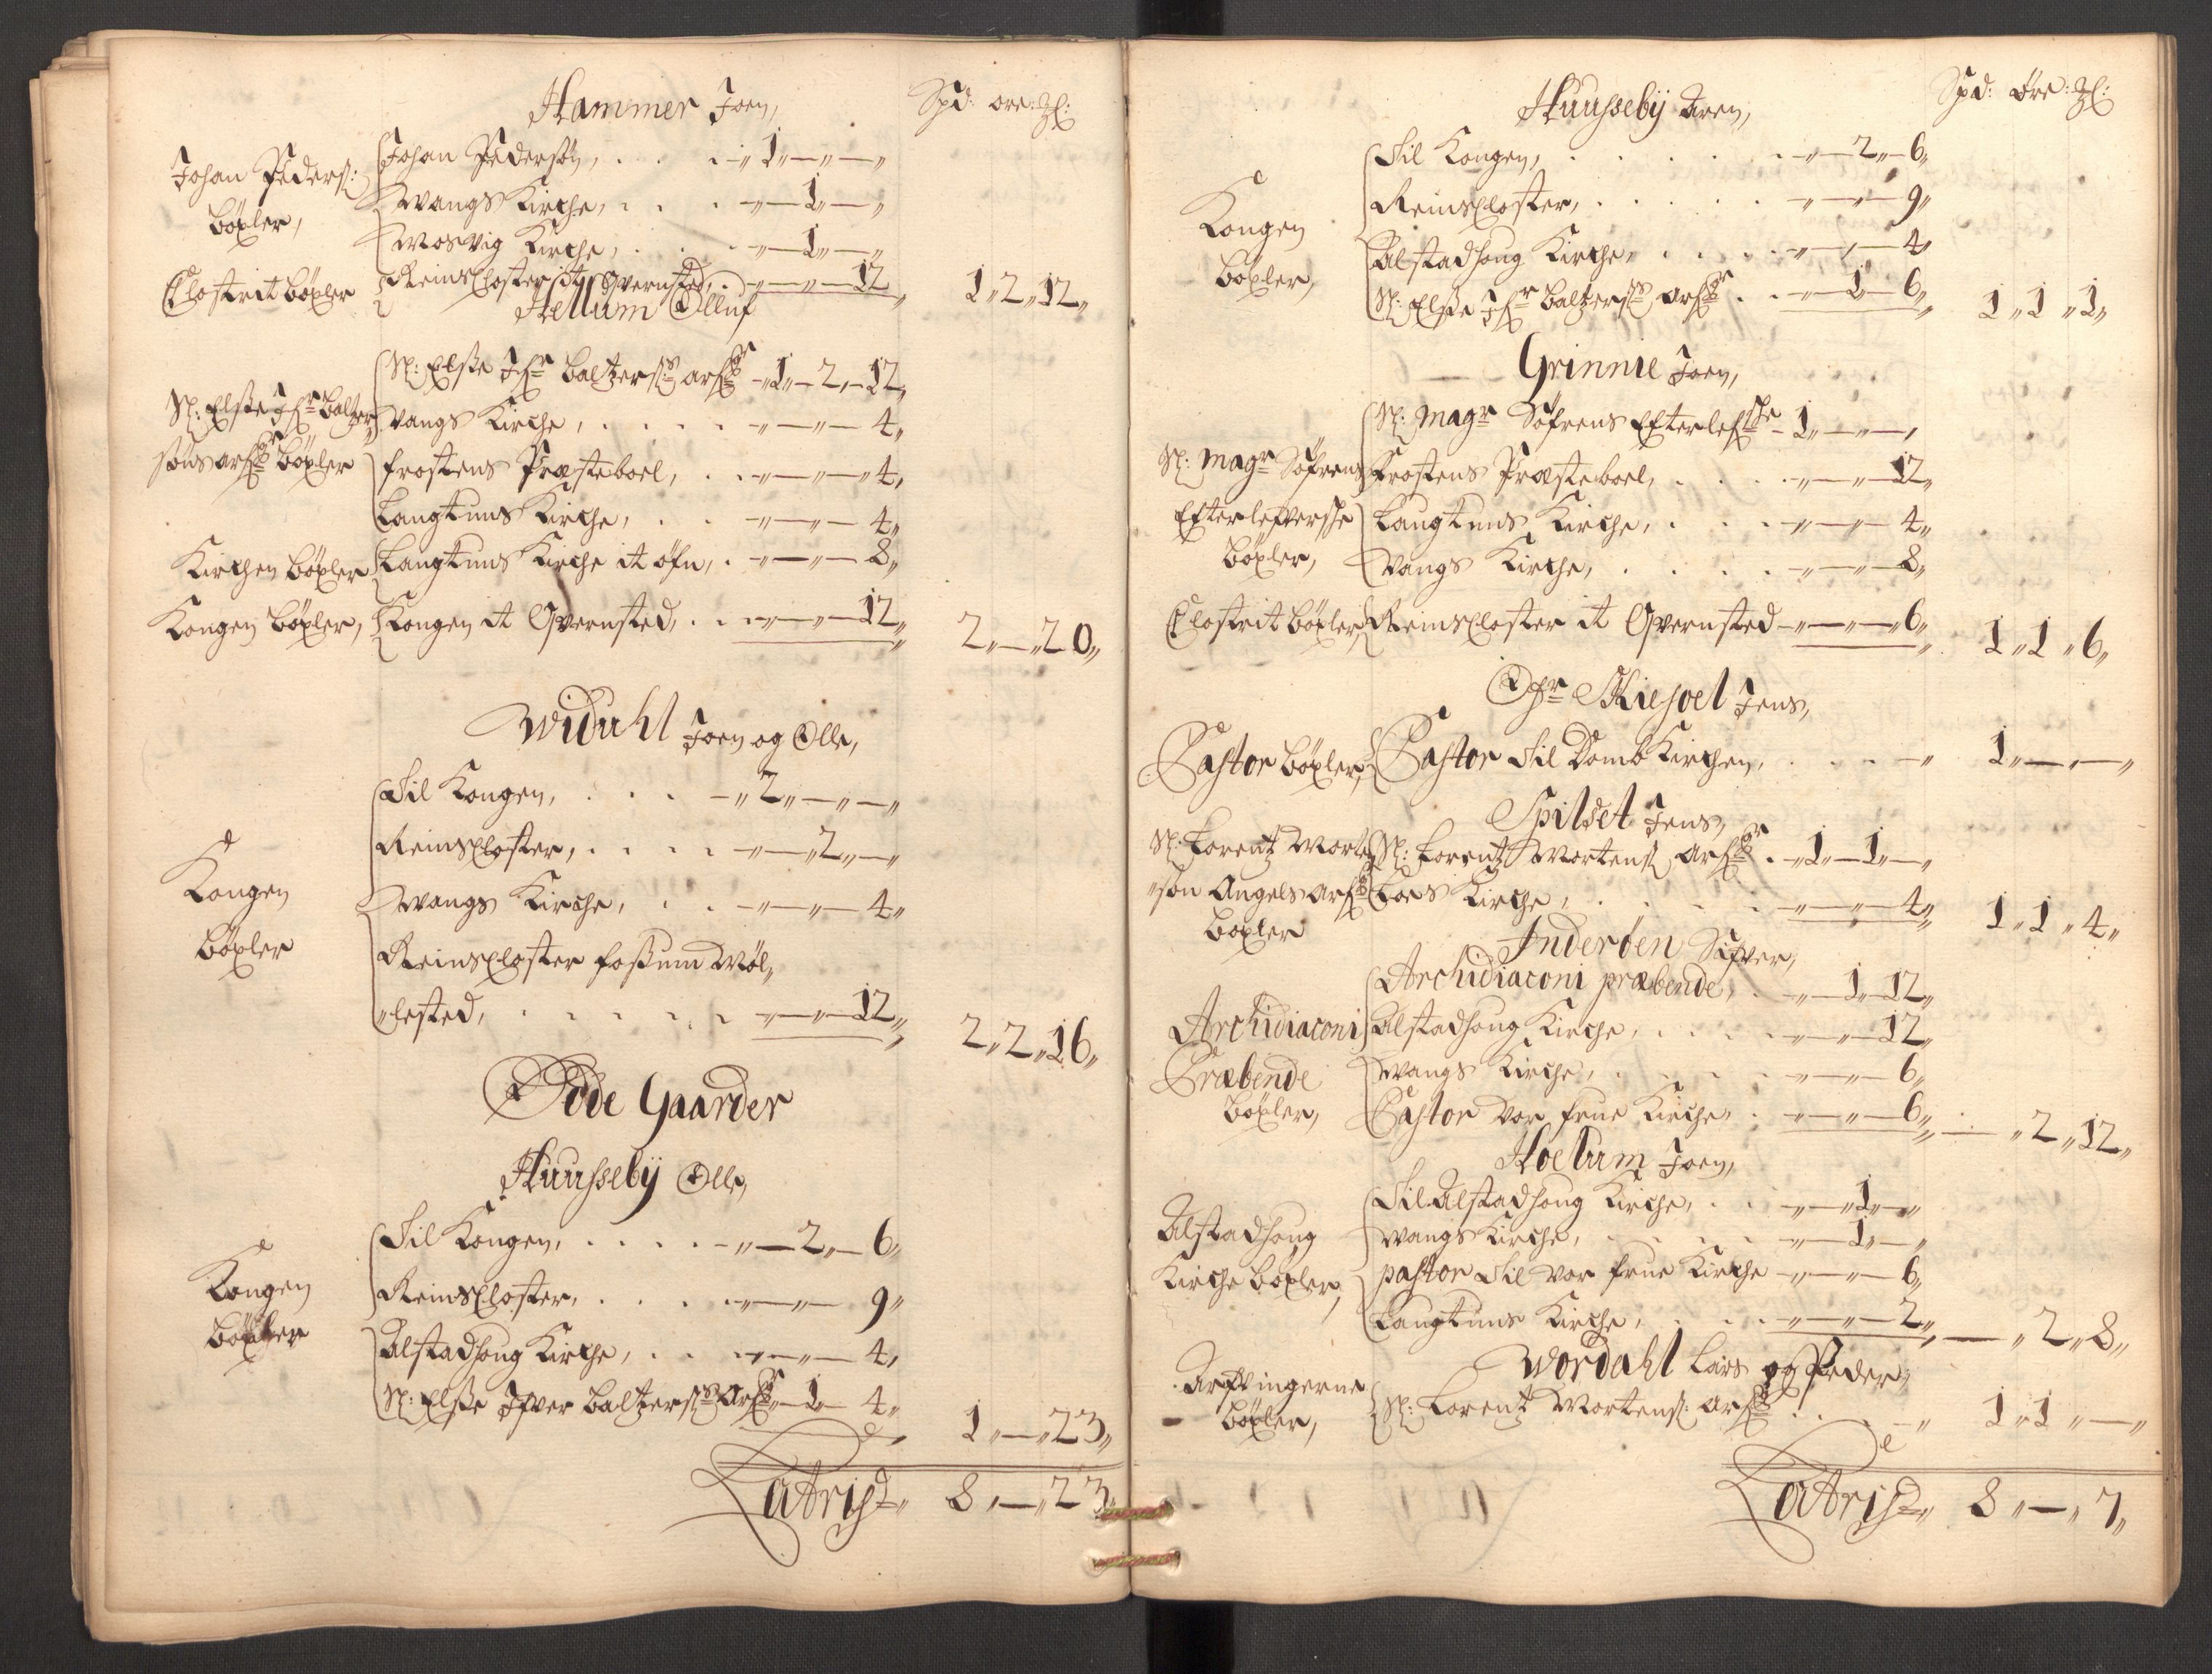 Hammer Joen,
Spd: ore: Mkl:
Johan Peders:
böxler,
Johan Pedersön, . . . „ 1 „ — „ — „
Wangs Kirche, . . . „ — 1 „ — „
Mosvig Kirche, . . . „ — 1 „ — „
Closterit böxler
Reinscloster it Qvernsted, . „ — „ — 12 „ 1 „ 2 „ 12 „
Hellum Olluf
Sl: Elsse Ifr Baltzer
søns arf: böxler
Sl: Elsse Ifr Baltzers: arf: „ 1 „ — 2 „ — 12 „
Vangs Kirche, . . . . „ — „ — 4 „
frostens Præsteboel, . . „ — „ — „ 4 „
Langtuns Kirche, . . . „ — „ — 4 „
Kirchen böxler
Langtuns Kirche it öfn, . „ — „ — 8 „
Kongen böxler,
Kongen it Qvernsted, . . „ — „ — 12 „ 2 „ — „ 20 „
Widahl Joen og Olle,
Kongen
böxler
Til Kongen, . . . — „ 2 „ — „ — „
Reinscloster, . . . . „ — „ 2 „ — „
Wangs Kirche, . . „ — „ — 4 „
Reinscloster fossum Möl„
„lested, . . . . . . „ — „ — 12 „ 2 „ 2 „ 16 „
Øde Gaarder
Huusseby Olle,
Kongen
böxler
Til Kongen, . . . . — „ — 2 „ — 6 „
Reinscloster, . . . . „ — „ — 9 „
Alstadhoug Kirche, . . . „ — „ — 4 „
Sl: Elsse Ifver Baltzers: Arf: „ — 1 — 4 „ 1 „ — „ 23 „
Latris „ 8 „ — „ 23 „
Huusseby Aren,
Spd: öre: Mkl:
Kongen
böxler,
Til Kongen, . . . . . „ — 2 „ — 6 „
Reinscloster, . . . . . „ — „ — 9 „
Alstadhoug Kirche, . . . . „ — „ — 4 „
Sl: Elsse Ifr Baltzers: arf: . . „ — 1 — 6 „ 1 „ 1 „ 1 „
Grinnie Joen,
Sl: Magr Söfrens
Efterlefversche
böxler,
Sl: Magr Söfrens Efterlefsche — 1 „ — „ — „
Frostens Præsteboel, . . . . „ — „ — 12 „
Langtuns Kirche, . . . . „ — „ — 4 „
Vangs Kirche, . . . . „ — „ — 8 „
Closterit böxler
Reinscloster it Qvernsted — „ — „ — „ 6 „ 1 „ 1 „ 6 „
Øfr Skiesoel Jens,
Pastor böxler,
Pastor til Domb Kirchen, . . . . „ 1 „ — „ — „
Spildet Jens,
Sl: Lorentz Morten
„søn Angels arf:
böxler
Sl: Lorentz Mortens: Arf: . „ 1 „ — 1 „ — „
Loes Kirche, . . . . . „ — „ — 4 „ 1 „ 1 „ 4 „
Inderöen Sifver,
Archidiaconi
Præbende
böxler,
Archidiaconi præbende, . „ — 1 „ 12 „
Alstadhoug Kirche, . . . . „ — „ — 12 „
Wangs Kirche, . . . . „ — „ — 6 „
Pastor vor frue Kirche, . „ — „ — 6 „ — „ 2 „ 12 „
Hoelum Joen,
Alstadhoug
Kirche böxler,
Til Alstadhoug Kirche, . . „ — „ 1 „ — „
Wangs Kirche, . . . . „ — 1 „ — „
pastor til vor frue Kirche — „ — „ — 6 „
Langtuns Kirche, . . . „ — „ — 2 „ — „ 2 „ 8 „
Wordahl Lars og Peder,
Arfvingerne
böxler,
Sl: Lorentz Mortens: Arf: . . . „ 1 „ 1 „ — „
Latris „ 8 „ — „ 7 „